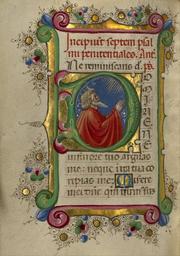 Incipiut septem psal
mi penitentiales. Ane.
Ne reminiscaris d. ps.
D
O
M
I
N
E
NE
in furore tuo arguas
me: neque in ira tua co
rripias me: Misere
mei dne qm infirmus